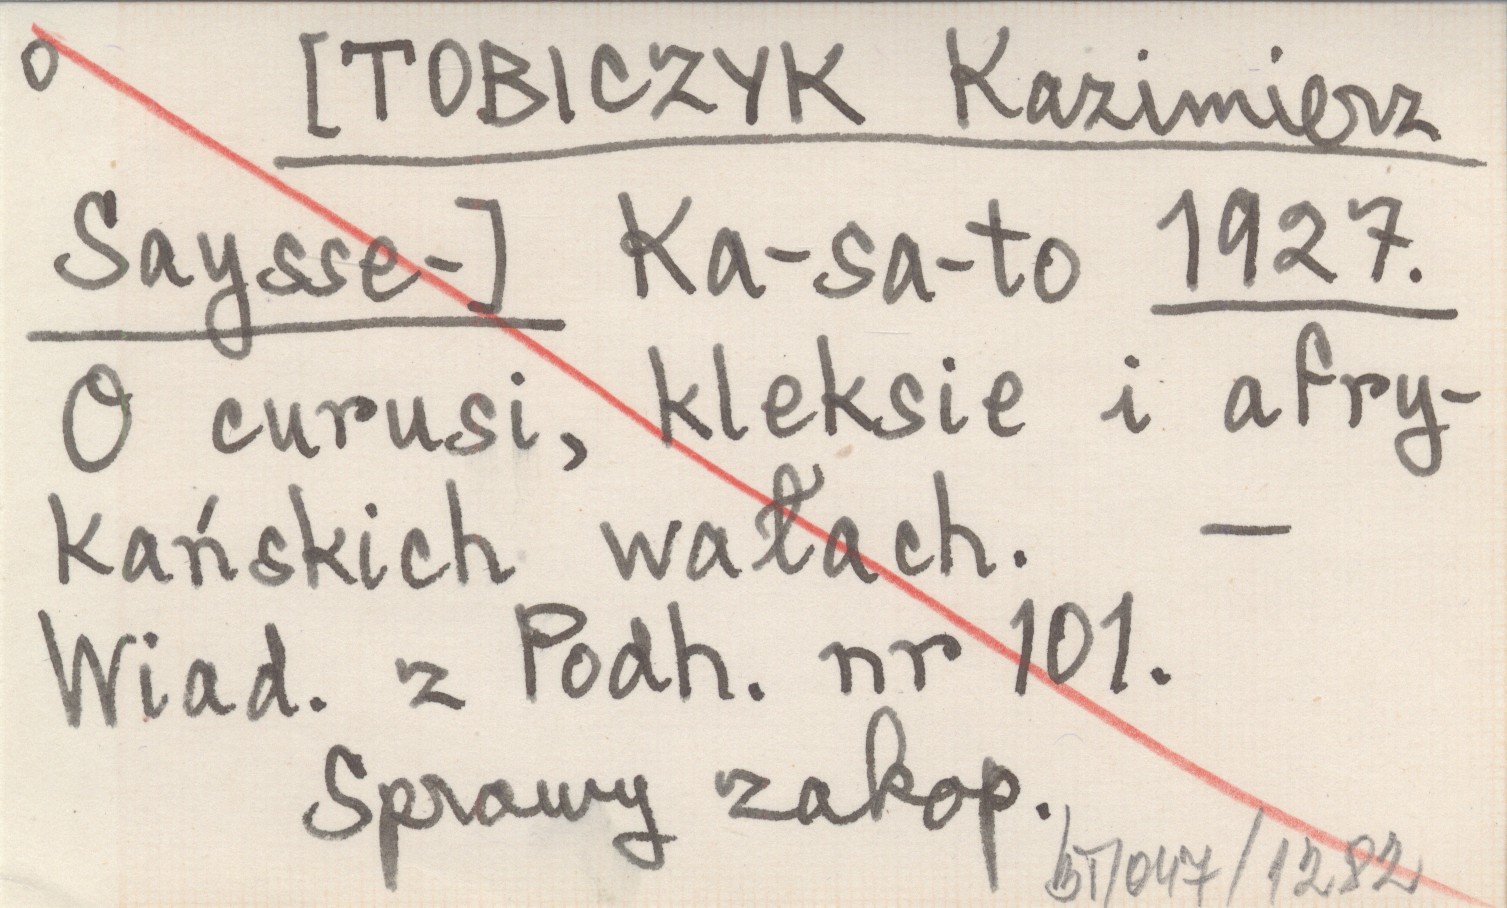 o [TOBICZYK Kazimierz
Saysse-] Ka-sa-to 1927.
O curusi, kleksie i afry-
kańskich wałach. —
Wiad. z Podh. nr 101.
Sprawy zakop.
BT/047/1282